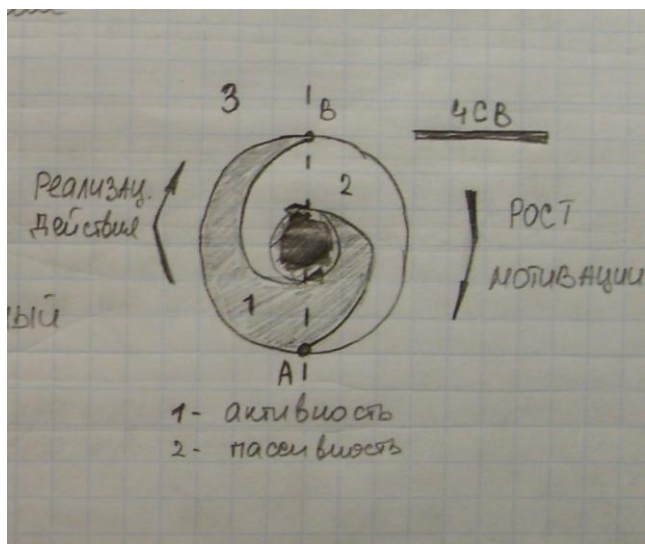 3
В
4СВ
2
Реализац.
Действия
РОСТ
МОТИВАЦИИ
1
ый
А
1- активность
2- пассивность